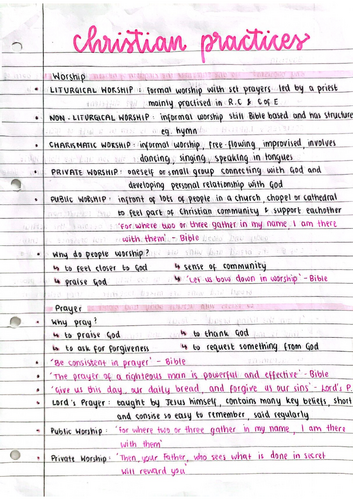 christian practices
Worship
• LITURGICAL WORSHIP : formal worship with set prayers led by a priest
mainly practised in R.C & C of E
• NON-LITURGICAL WORSHIP : informal worship still Bible based and has structure
eg. hymn
• CHARISMATIC WORSHIP : informal worship, free-flowing, improvised, involves
dancing, singing, speaking in tongues
• PRIVATE WORSHIP : oneself or small group connecting with God and
developing personal relationship with God
• PUBLIC WORSHIP : infront of lots of people in a church, chapel or cathedral
to feel part of Christian community & support eachother
'for where two or three gather in my name, I am there
with them' - Bible
• Why do people worship?
↳ to feel closer to God ↳ sense of community
↳ praise God ↳ 'Let us bow down in worship' - Bible
Prayer
• Why pray?
↳ to praise God ↳ to thank God
↳ to ask for forgiveness ↳ to request something from God
• 'Be consistent in prayer' - Bible
• 'The prayer of a righteous man is powerful and effective' - Bible
• 'Give us this day, our daily bread, and forgive us our sins' - Lord's P.
• Lord's Prayer : taught by Jesus himself, contains many key beliefs, short
and consise so easy to remember, said regularly
• Public Worship : 'for where two or three gather in my name, I am there
with them'
• Private Worship : 'Then, your Father, who sees what is done in secret
will reward you'